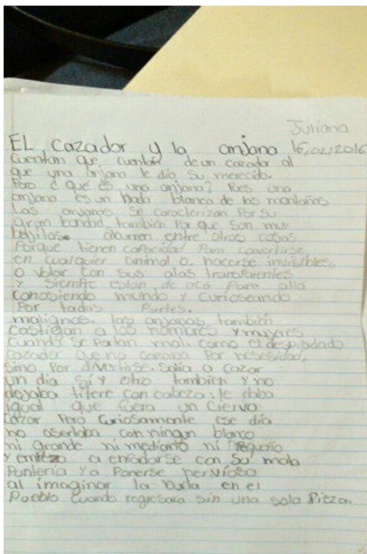 Juliana
EL cazador y la anjana 16,02,2016
Cuentan que cuentan de un cazador al
que una anjana le dio su merecido.
Pero ¿ que es una anjana? Pues una
anjana es un hada blanca de las montañas
Las anjanas se caracterizan por su
gran bondad, también por que son muy
bellas ocurren entre otras cosas
Porque tienen capacidad Para convertirse
en cualquier animal o hacerse invisibles,
o volar con sus alas transparentes
y siempre estan de acá para alla
conosiendo mundo y curioseando
Por todas Partes.
malignas. las anjanas también
castigan a los hombres y mujeres
cuando se Portan mal como el despiadado
cazador que no cazaba Por nesesidad,
sino Por divertirse. Salia a cazar
un dia si y otro tambien y no
dejaba titere con cabeza: le daba
igual que fuera un ciervo
cazar Pero curiosamente ese dia
no asertaba con ningun blanco
ni grande ni mediano ni Pequeño
y empezo a enfadarse con su mala
Punteria y a Ponerse nervioso
al imaginar la burla en el
Pueblo cuando regresara sin una sola Pieza.